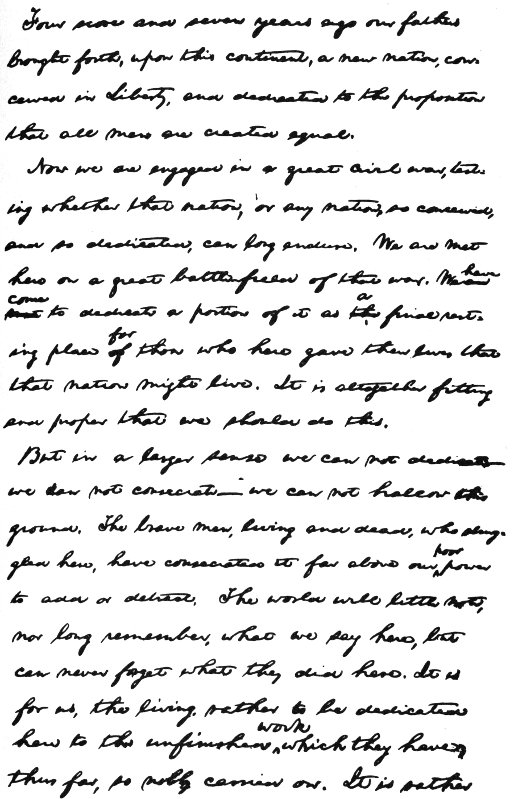 Four score and seven years ago our fathers
brought forth, upon this continent, a new nation, con-
ceived in Liberty, and dedicated to the proposition
that all men are created equal.
Now we are engaged in a great civil war, test-
ing whether that nation, or any nation, so conceived,
and so dedicated, can long endure. We are met
here on a great battle-field of that war. We are have
come
met to dedicate a portion of it as the a final rest-
ing place of for those who here gave their lives that
that nation might live. It is altogether fitting
and proper that we should do this.
But in a larger sense we can not dedicate
we can not consecrate— we can not hallow this
ground. The brave men, living and dead, who strug-
gled here, have consecrated it far above our poor power
to add or detract. The world will little note,
nor long remember, what we say here, but
can never forget what they did here. It is
for us, the living, rather to be dedicated
here to the unfinished work which they have,
thus far, so nobly carried on. It is rather